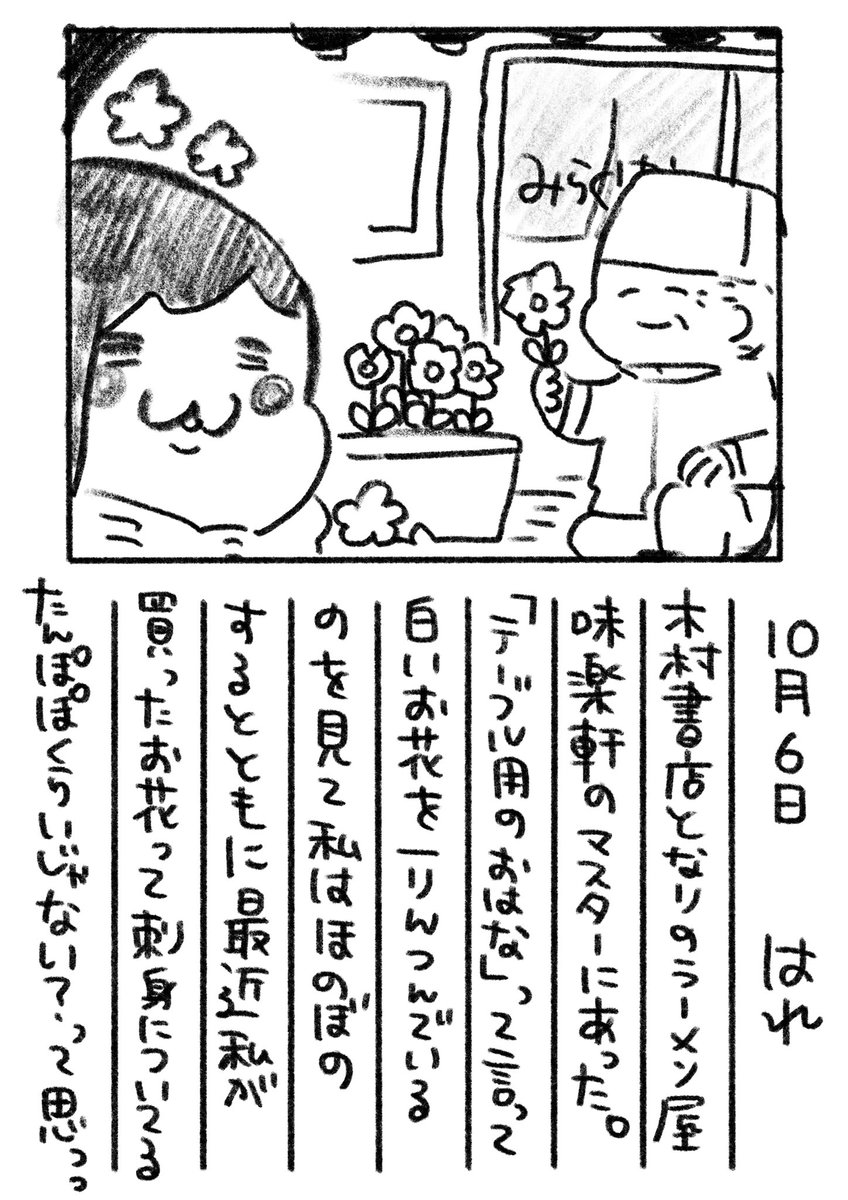 みらくけん
10月6日 はれ
木村書店となりのラーメン屋
味楽軒のマスターにあった。
「テーブル用のおはな」って言って
白いお花を一りんつんでいる
のを見て私はほのぼの
するとともに最近私が
買ったお花って刺身についてる
たんぽぽくらいじゃない？って思っっ